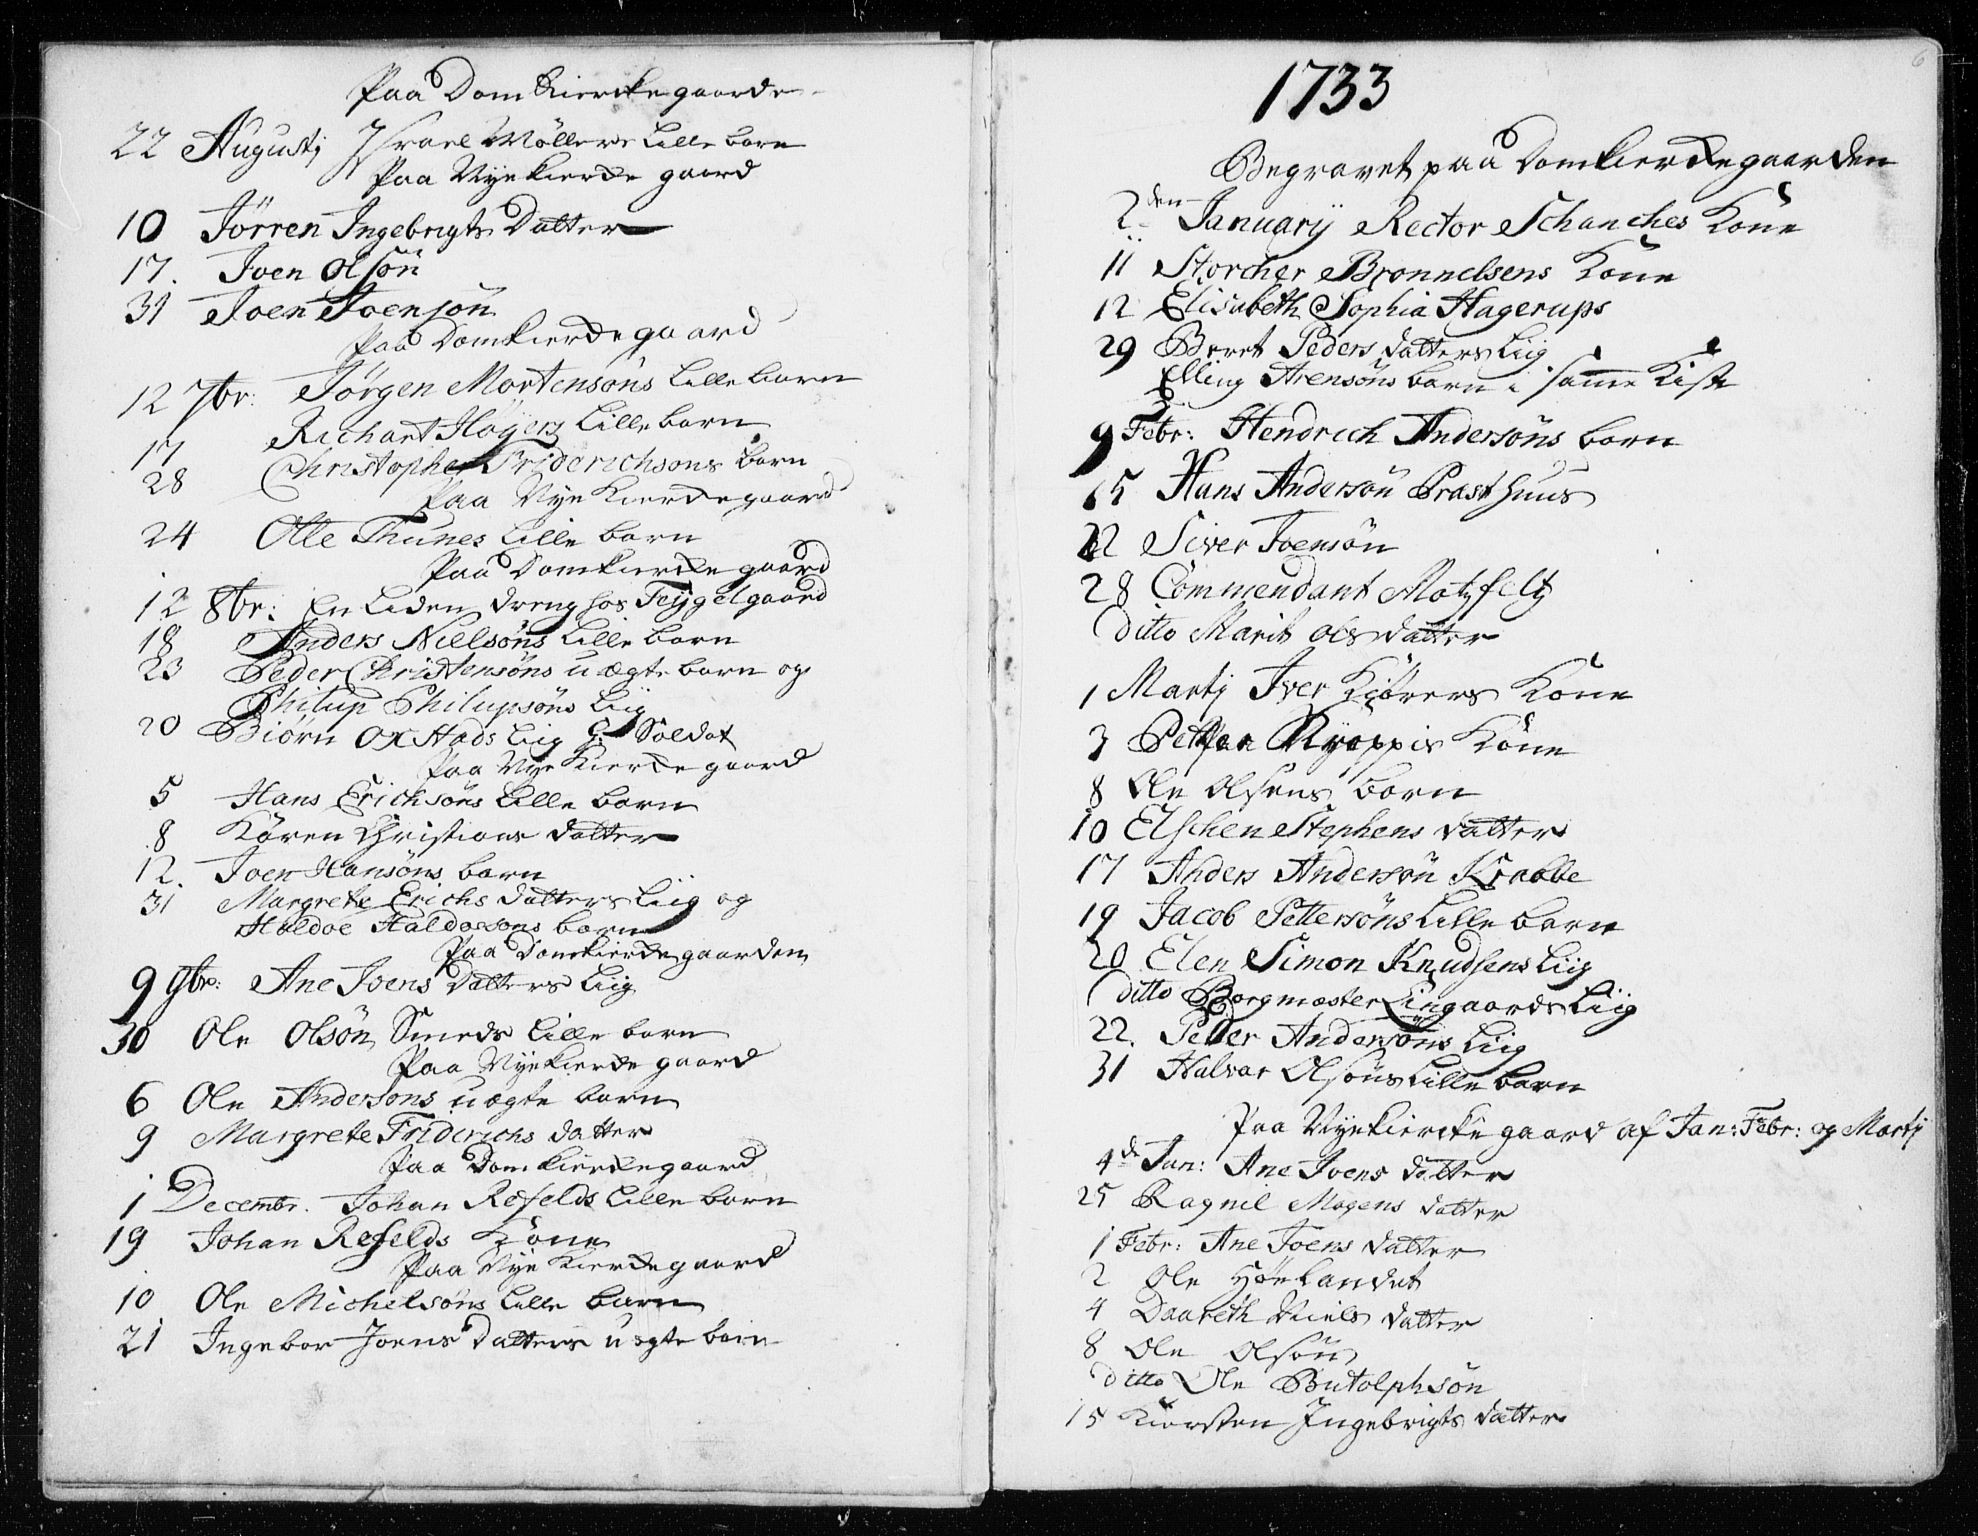 Paa Domkierckegaarde
22 Augustj Israel Möllers Lille barn
Paa Nyekierckegaard
10 Jörren Ingebrigts Datter
17. Joen Olsön
31 Joen Joensön
Paa Domkierckegaard
12 7br: Jörgen Mortensöns Lille barn
17 Richart Höyers Lille barn
28 Christopher Friderichsons barn
Paa Nye Kierckegaard
24 Olle Thunes Lille barn
Paa Domkierckegaard
12 8br: En Liden dreng hos Teygelgaard
18 Anders Nielsöns Lille barn
23 Peder Christensöns uægte barn og
Philup Philupsöns Liig
20 Biörn Oxstads Liig G: Soldat
Paa Nye Kierckegaard
5 Hans Erichsöns Lille barn
8 Karen Christians datter
12. Joen Hansöns barn
31 Margrete Erichs datters Liig og
Haldoe Haldossons barn
Paa Domkierckegaarden
9 9br: Ane Joens Datters Liig
30 Ole Olsön Smeds Lille barn
Paa Nyekierckegaard
6 Ole Andersons uægte barn
9 Margrete Friderichs datter
Paa Domkierckegaard
1 Decembr. Johan Refelds Lille barn
19 Johan Refelds Kone
Paa Nye Kierckegaard
10 Ole Michelsöns Lille barn
21 Ingebor Joens Datters uægte barn
6
1733
Begravet paa Domkierckegaarden
2den Januarij Rector Schanches Kone
11 Storcher Bronnelsens Kone
12 Elisabeth Sophia Hagerups
29 Beret Peders datters Liig
Elling Arensöns barn i samme Kiste
9 Febr: Hendrich Andersöns barn
15 Hans Andersön Præsthuus
22 Siver Joensön
28 Commendant Motzfeltz
ditto Marit Ols datter
1 Martj Iver Kiörers Kone
3 Petter Kone
8 Ole Olsens barn
10 Elschen Stephens datter
17 Anders Andersön Krabbe
19 Jacob Pettersöns Lille barn
20 Elen Simon Knudsens Liig
ditto Borgmester Lingaards Liig
22. Peder Andersöns Liig
31 Halvar Olsöns Lille barn
Paa Nyekierckegaard af Jan: Febr: og Martj
4de Jan: Ane Joens datter
25 Ragnil Mogens datter
1 Febr: Ane Joens datter
2 Ole Höelandet
4 Daareth Niels datter
8 Ole Olsön
ditto Ole Butolphsön
15 Kiersten Ingebrigts datter